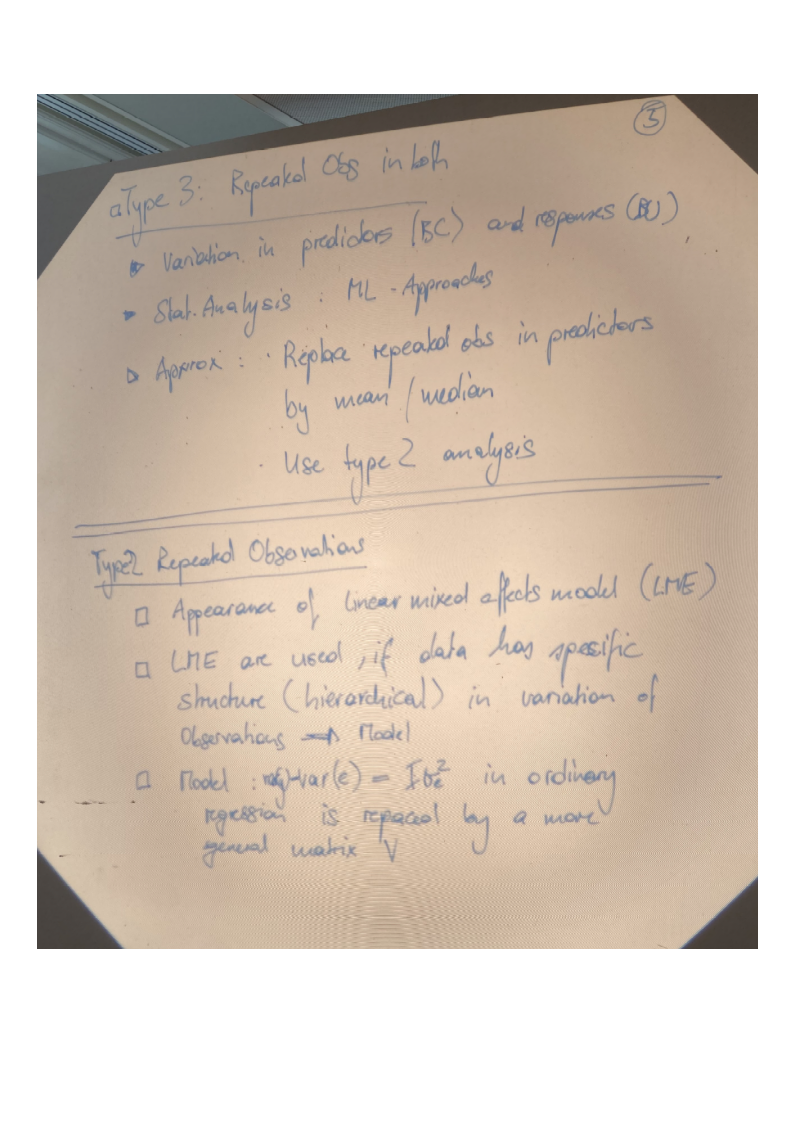 3
Type 3: Repeated Obs in both
Variation in predictors (BC) and responses (BW)
Stat. Analysis : ML - Approaches
Approx : · Replace repeated obs in predictors
by mean / median
· Use type 2 analysis
Type2 Repeated Observations
Appearance of linear mixed effects model (LME)
LME are used , if data has spesific
structure (hierarchical) in variation of
Observations → Model
Model : var(e) = Iσe² in ordinary
regression is repaced by a more
general matrix V